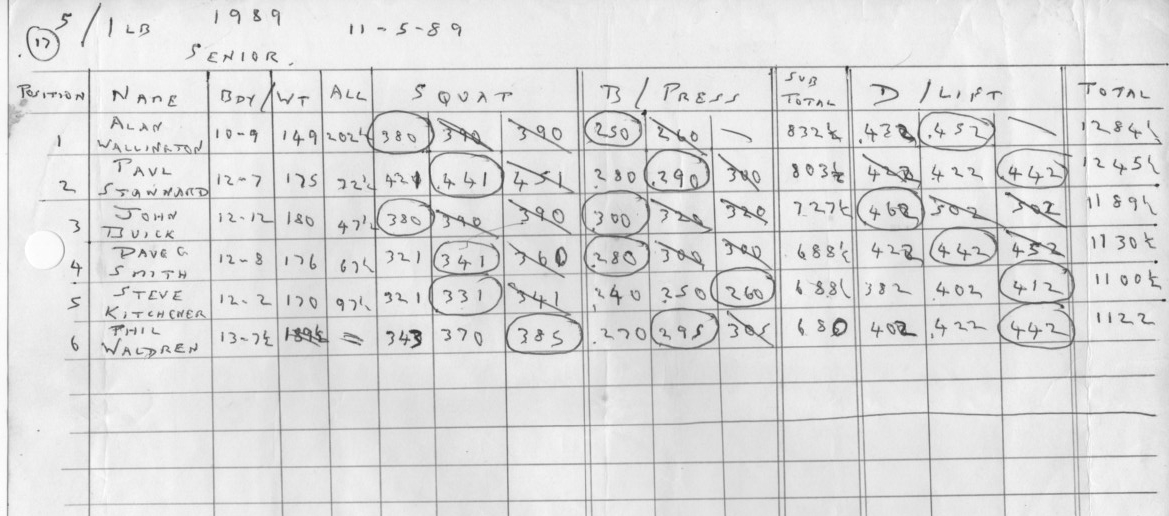 5/1LB 1989 11-5-89
17
SENIOR.
POSITION NAME BDY/WT ALL SQUAT B/PRESS SUB TOTAL D/LIFT TOTAL
1 ALAN WALLINGTON 10-9 149 202½ 380 390 390 250 260 — 832½ 432 452 — 1284½
2 PAUL STANNARD 12-7 175 72½ 421 441 451 280 290 300 803½ 422 422 442 1245½
3 JOHN BUICK 12-12 180 47½ 380 390 390 300 320 320 727½ 462 502 502 1189½
4 DAVE G SMITH 12-8 176 67½ 321 341 360 280 300 300 688½ 422 442 452 1130½
5 STEVE KITCHENER 12-2 170 97½ 321 331 341 240 250 260 688½ 382 402 412 1100½
6 PHIL WALDREN 13-7½ 189½ = 343 370 385 270 295 305 680 402 422 442 1122